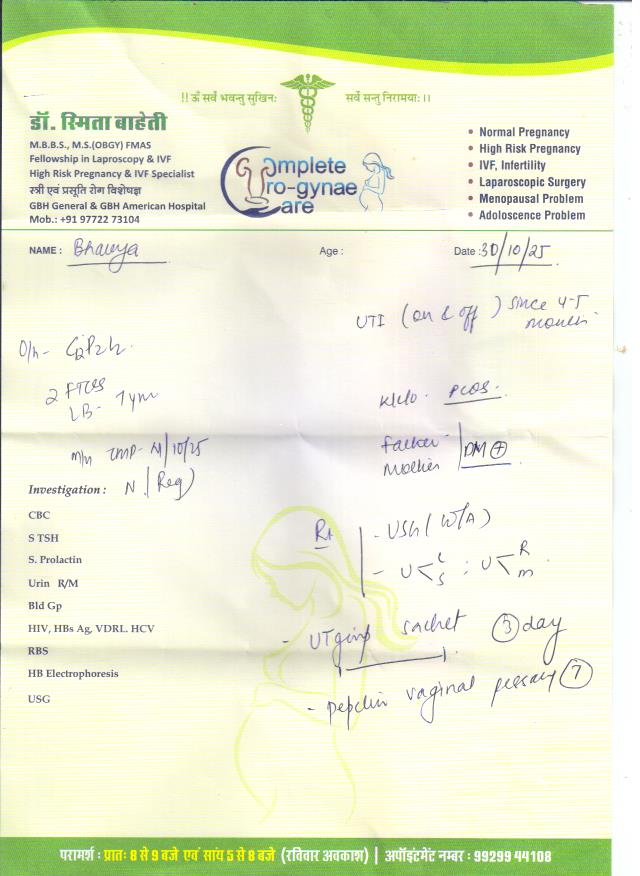 !! ॐ सर्वे भवन्तु सुखिनः सर्वे सन्तु निरामयाः ।।
डॉ. स्मिता बाहेती
M.B.B.S., M.S.(OBGY) FMAS
Fellowship in Laproscopy & IVF
High Risk Pregnancy & IVF Specialist
स्त्री एवं प्रसूति रोग विशेषज्ञ
GBH General & GBH American Hospital
Mob.: +91 97722 73104
Complete
Uro-gynae
Care
• Normal Pregnancy
• High Risk Pregnancy
• IVF, Infertility
• Laparoscopic Surgery
• Menopausal Problem
• Adoloscence Problem
NAME : Bhavya Age : Date : 30/10/25
UTI (on & off) since 4-5
months
O/h- G2P2L2
2 FTCS
LB- 7yrs
K/c/o. PCOS.
m/h LMP- /10/25
N. (Reg)
Father-
Mother DM +
Investigation :
CBC
S TSH
S. Prolactin
Urin R/M
Bld Gp
HIV, HBs Ag, VDRL. HCV
RBS
HB Electrophoresis
USG
Rx
- USG (W/A)
- U < C S ; U < R m
- sachet 3 day
- vaginal pessary 7
परामर्श : प्रातः 8 से 9 बजे एवं सांय 5 से 8 बजे (रविवार अवकाश) | अपॉइंटमेंट नम्बर : 99299 44108